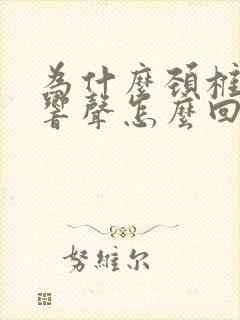 為什麼頚椎
響聲怎麼回
努維尔